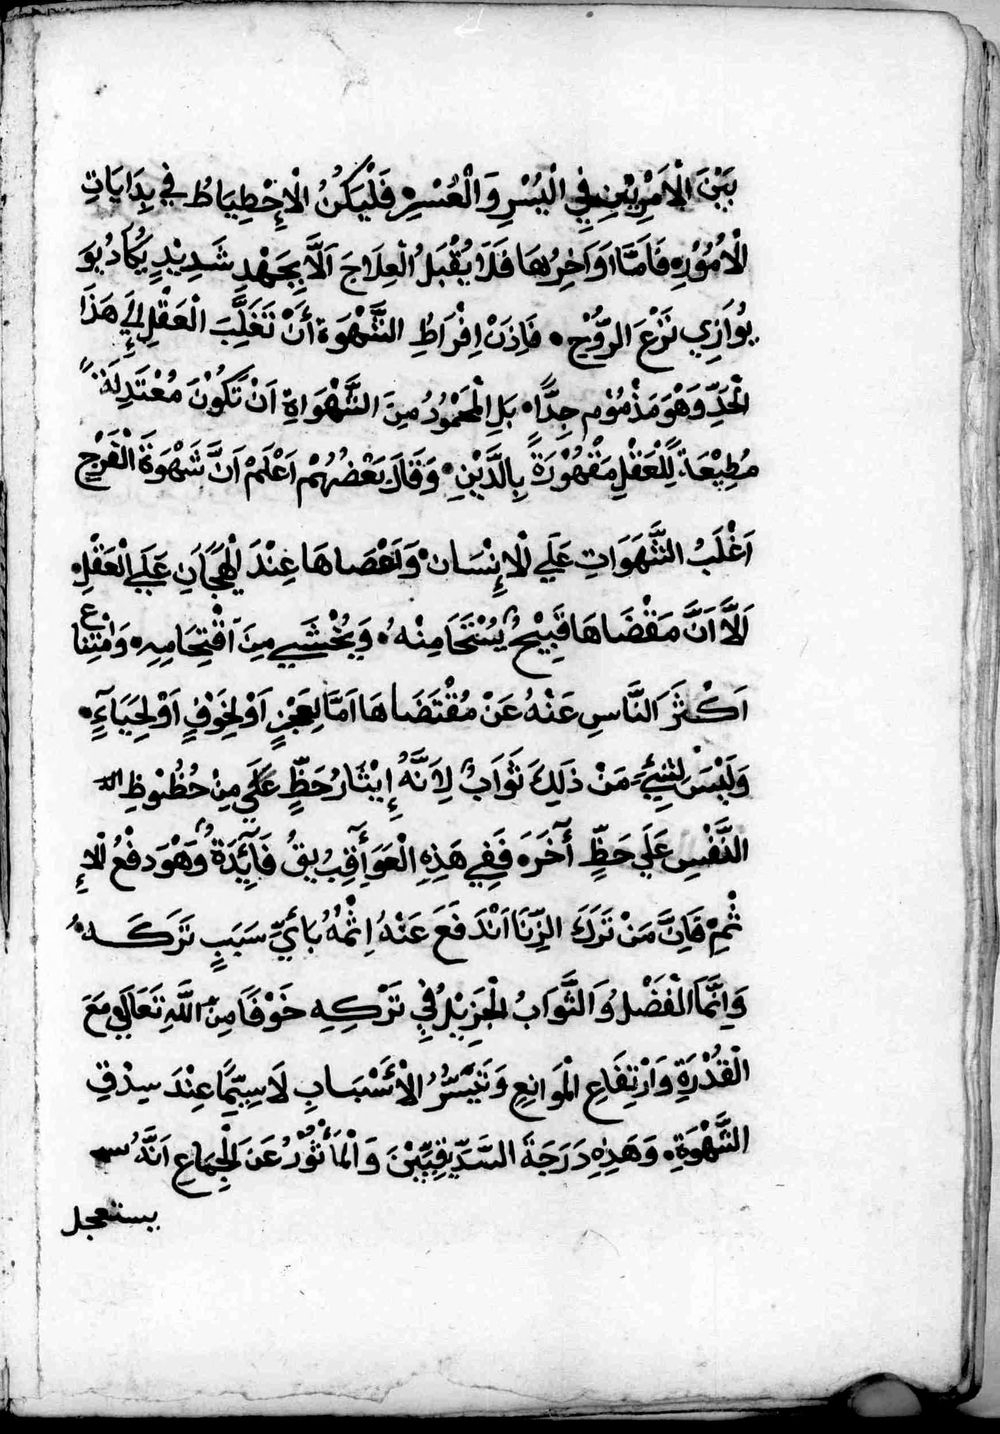 بَيْنَ الْاَمْرَيْنِ فِي الْيُسْرِ وَالْعُسْرِ فَلْيَكُنُ الْاِحْطِيَاطُ فِي بِدَايَاتِ
الْاُمُوْرِ فَاَمَّا اَوَاخِرُهَا فَلَا يُقْبَلُ الْعِلَاجَ اَلَّا بِجَهْدٍ شَدِيْدٍ يُكَادُ يُوَ
يُوَازِي نَزْعَ الرُّوْحِ۰ فَاِذَنْ اِفْرَاطُ الشَّهْوَةِ أَنْ تَغَلِّبَ الْعَقْلِ إِلَى هَذَا
الْحَدِّ وَهْوَ مَذْمُوْم جِدًّا۰ بَلِ الْمَحْمُوْدُ مِنَ الشَّهْوَاةِ اَنْ تَكُوْنَ مُعْتَدِلَةً
مُطِيْعَةً لِّلْعَقْلِ مَقْهُوْرَةً بِالدَّيْنِ۰ وَقَالَ بَعْضُهُمْ اَعْلَمْ اَنَّ شَهْوَةَ الْفَرْجِ
اَغْلَبُ الشَّهَوَاتِ عَلَي الْاِنْسَان۰ وَاَعْصَاهَا عِنْدَ الْهِيَجَانِ عَلَي الْعَقْلِ۰
اَلَّا اَنَّ مَقْضَاهَا قَبِيْحٌ يُسْتَحَا مِنْهُ۰ وَيُخْشَي مِنَ اقْتِحَامِهِ۰ وَامْتِنَاع
اَكْثَرَ النَّاسِ عَنْهُ عَنْ مُقْتَضَاهَا اَمَّا لِعَجْزٍ اَوْ لِخَوْفٍ اَوْ لِحِيَآءٍ۰
وَلَيْسَ لِشَيْءٍ مَنْ ذَلِكَ ثَوَابٌ لِاَنَّهُ إِيْثَارُ حَظٍّ عَلَي مِنْ حُظُوْظِ الد
النَّفْسِ عَلَي حَظٍّ آخَرَ۰ فَفِي هَذِهِ الْعَوَأَقِب يِقُ فَآئِدَةٌ وَهْوَ دفْعُ الْاِ
ثْمِ فَاِنَّ مَنْ تَرَكَ الزِّنَا اَنْدَفَعَ عَنْهُ اِثْمُهُ بِاَيِّ سَبَبٍ تَرَكَهُ۰
وَاِنَّمَا الْفَضْلُ وَالثَّوَابُ الْجَزِيْلُ فِي تَرْكِهِ خَوْفًا مِنَ اللَّهِ تَعَالَي مَعَ
الْقُدْرَةِ وَارْتِفَاعِ الْمَوَانِعِ وَتَيَسُّرُ الْاَسْبَابِ لَا سِيَّمَا عِنْدَ سِدْقِ
الشَّهْوَةِ۰ وَهَذِهِ دَرَجَةُ السَّدِّيْقِيِّيْنَ وَالْمَأْثُوْرُ عَنَ الْجِمَاعِ اَنَّهُ
يستعجل